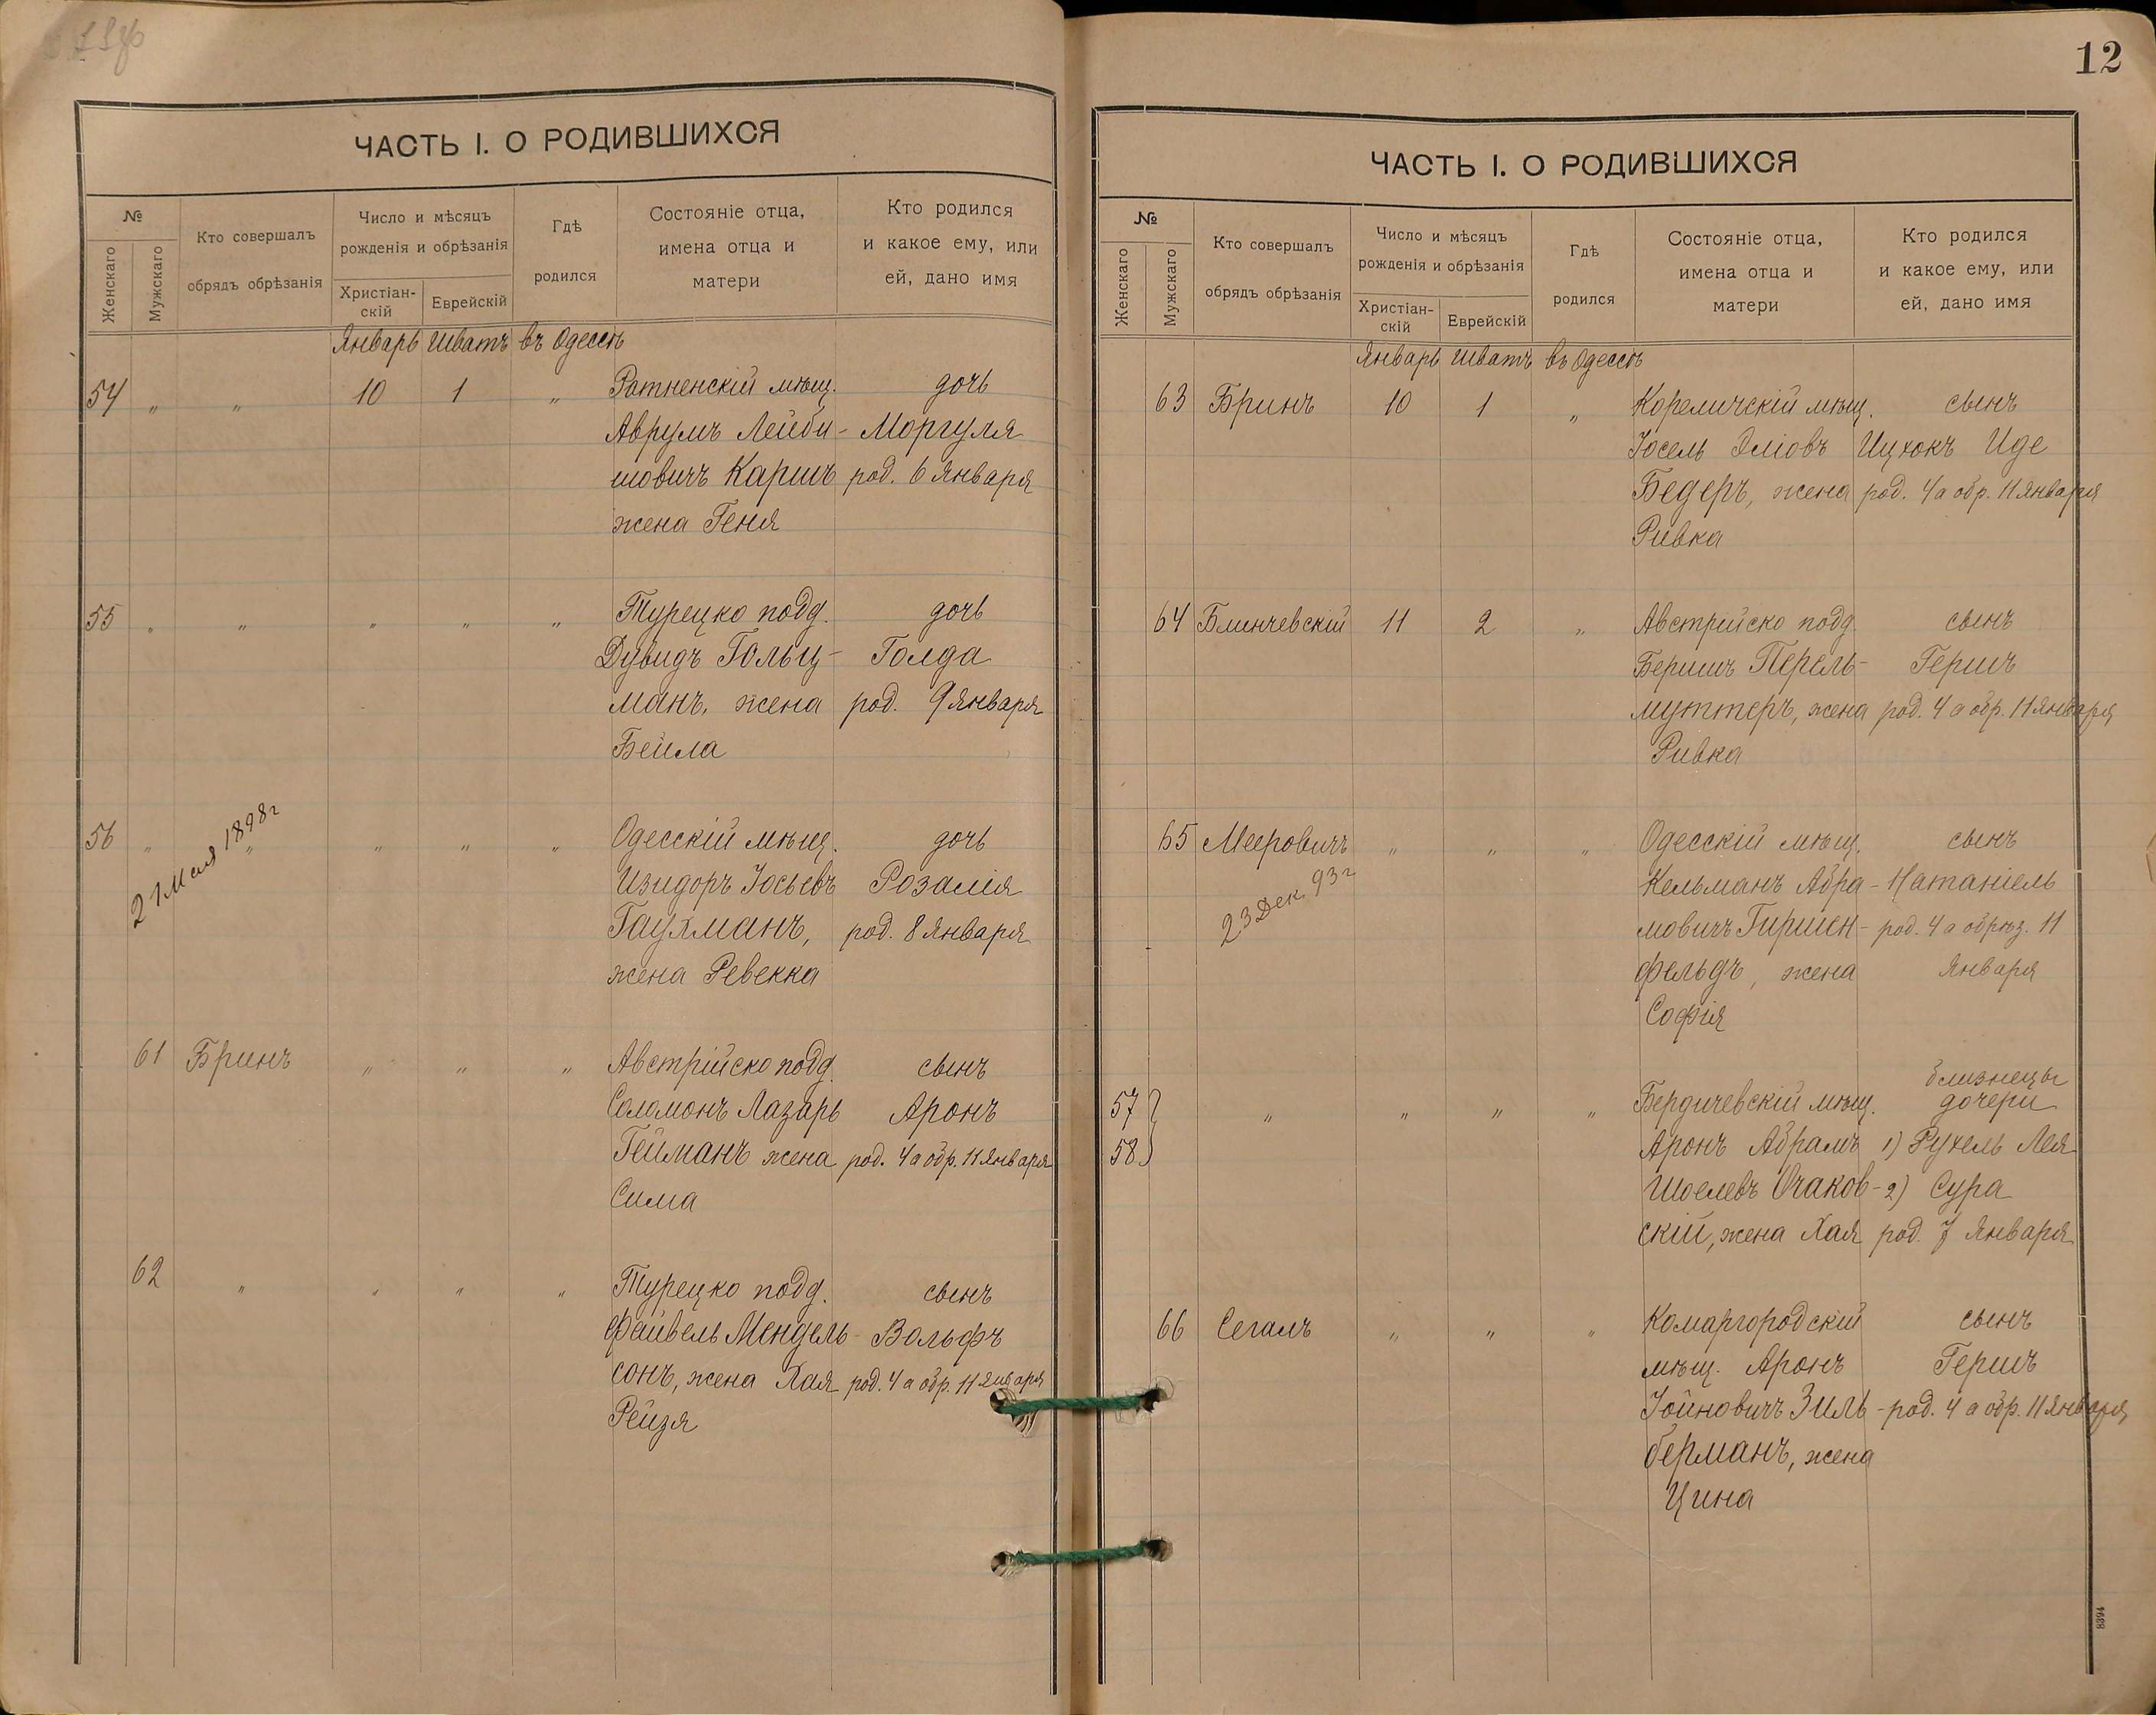 ЧАСТЬ I. О РОДИВШИХСЯ
№
Женскаго
Мужскаго
Кто совершалъ
обрядъ обрѣзанія
Число и мѣсяцъ
рожденія и обрѣзанія
Христіан-
скій
Еврейскій
Гдѣ
родился
Состояніе отца,
имена отца и
матери
Кто родился
и какое ему, или
ей, дано имя
Январь Шватъ въ Одессѣ
54 „ „ 10 1 „ Ратненскій мѣщ. дочь
Аврумъ Лейби- Моргуля
шовичъ Каршъ род. 6 Января
жена Геня
55 „ „ „ „ „ Турецко подд. дочь
Дувидъ Гольц- Голда
манъ, жена род. 9 Января
Бейла
56 „ „ „ „ „ Одесскій мѣщ. дочь
21 Мая 1898 г
Изидоръ Іосьевъ Розалія
Гаухманъ, род. 8 Января
жена Ревекка
61 Бринъ „ „ „ Австрійско подд. сынъ
Соломонъ Лазарь Аронъ
Гейманъ жена род. 4 а обр. 11 Января
Сима
62 „ „ „ „ Турецко подд. сынъ
Файвель Мендель- Вольфъ
сонъ, жена Хая род. 4 а обр. 11 Января
Рейзя
12
ЧАСТЬ I. О РОДИВШИХСЯ
№
Женскаго
Мужскаго
Кто совершалъ
обрядъ обрѣзанія
Число и мѣсяцъ
рожденія и обрѣзанія
Христіан-
скій
Еврейскій
Гдѣ
родился
Состояніе отца,
имена отца и
матери
Кто родился
и какое ему, или
ей, дано имя
Январь Шватъ въ Одессѣ
63 Бринъ 10 1 „ Кореличскій мѣщ. сынъ
Іосель Эліовъ Ицхокъ Иде
Бедеръ, жена род. 4 а обр. 11 Января
Ривка
64 Блинчевскій 11 2 „ Австрійско подд. сынъ
Беришъ Перель- Гершъ
муттеръ, жена род. 4 а обр. 11 Января
Ривка
65 Мееровичъ „ „ „ Одесскій мѣщ. сынъ
23 Дек. 93 г
Кельманъ Абра- Натаніель
мовичъ Гиршен- род. 4 а обрѣз. 11
фельдъ, жена Января
Софія
близнецы
57 „ „ „ „ Бердичевскій мѣщ. дочери
58 Аронъ Абрамъ 1) Рухель Лея
Шоелевъ Очаков- 2) Сура
скій, жена Хая род. 7 Января
66 Сегалъ „ „ „ Комаргородскій сынъ
мѣщ. Аронъ Гершъ
Іойновичъ Зиль- род. 4 а обр. 11 Января
берманъ, жена
Цина
8394